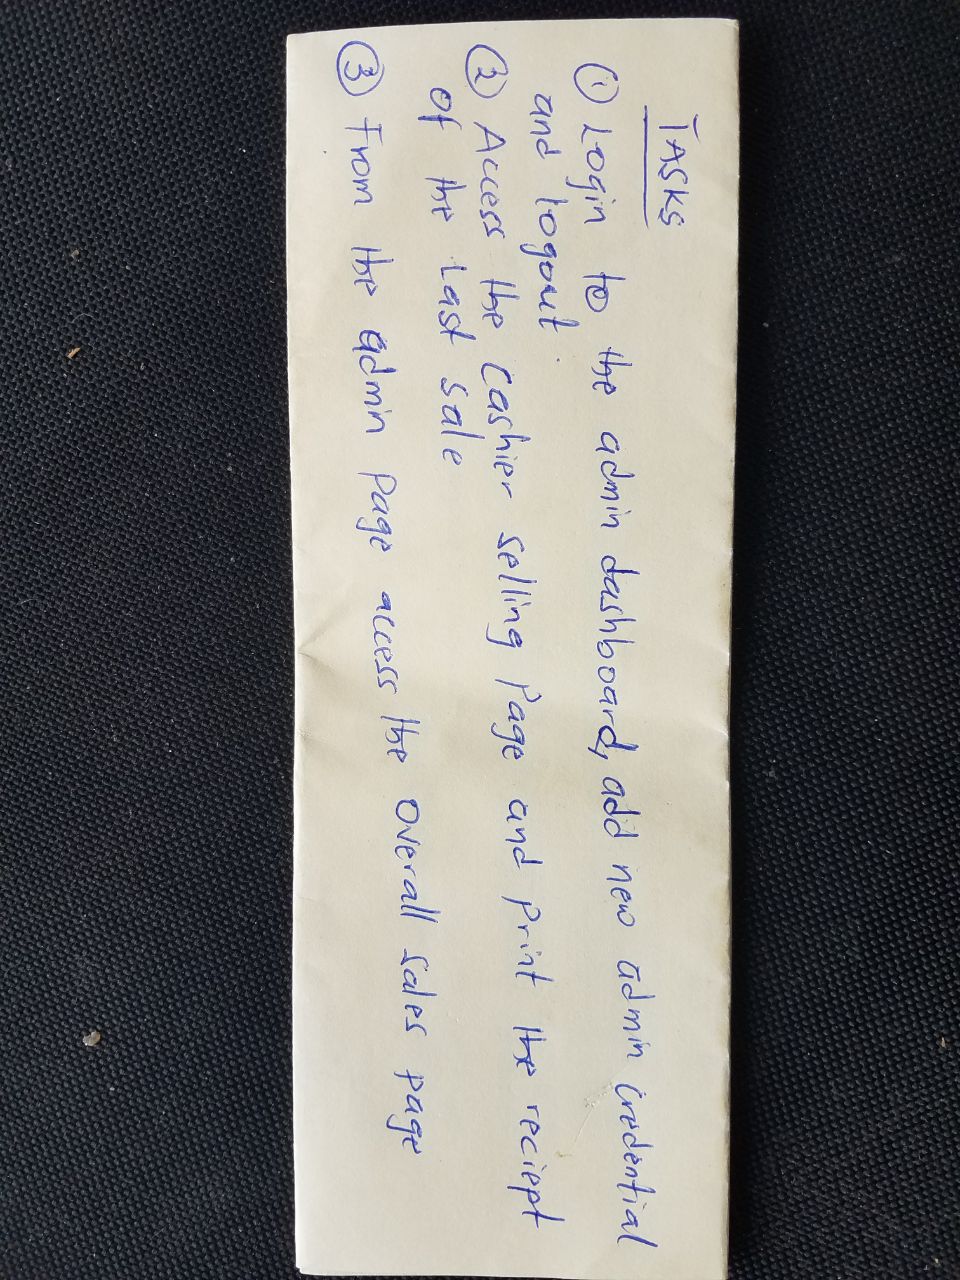 TASKS
① Login to the admin dashboard, add new admin credential
and logout.
② Access the cashier selling Page and print the reciept
of the Last sale
③ From the admin page access the overall sales page